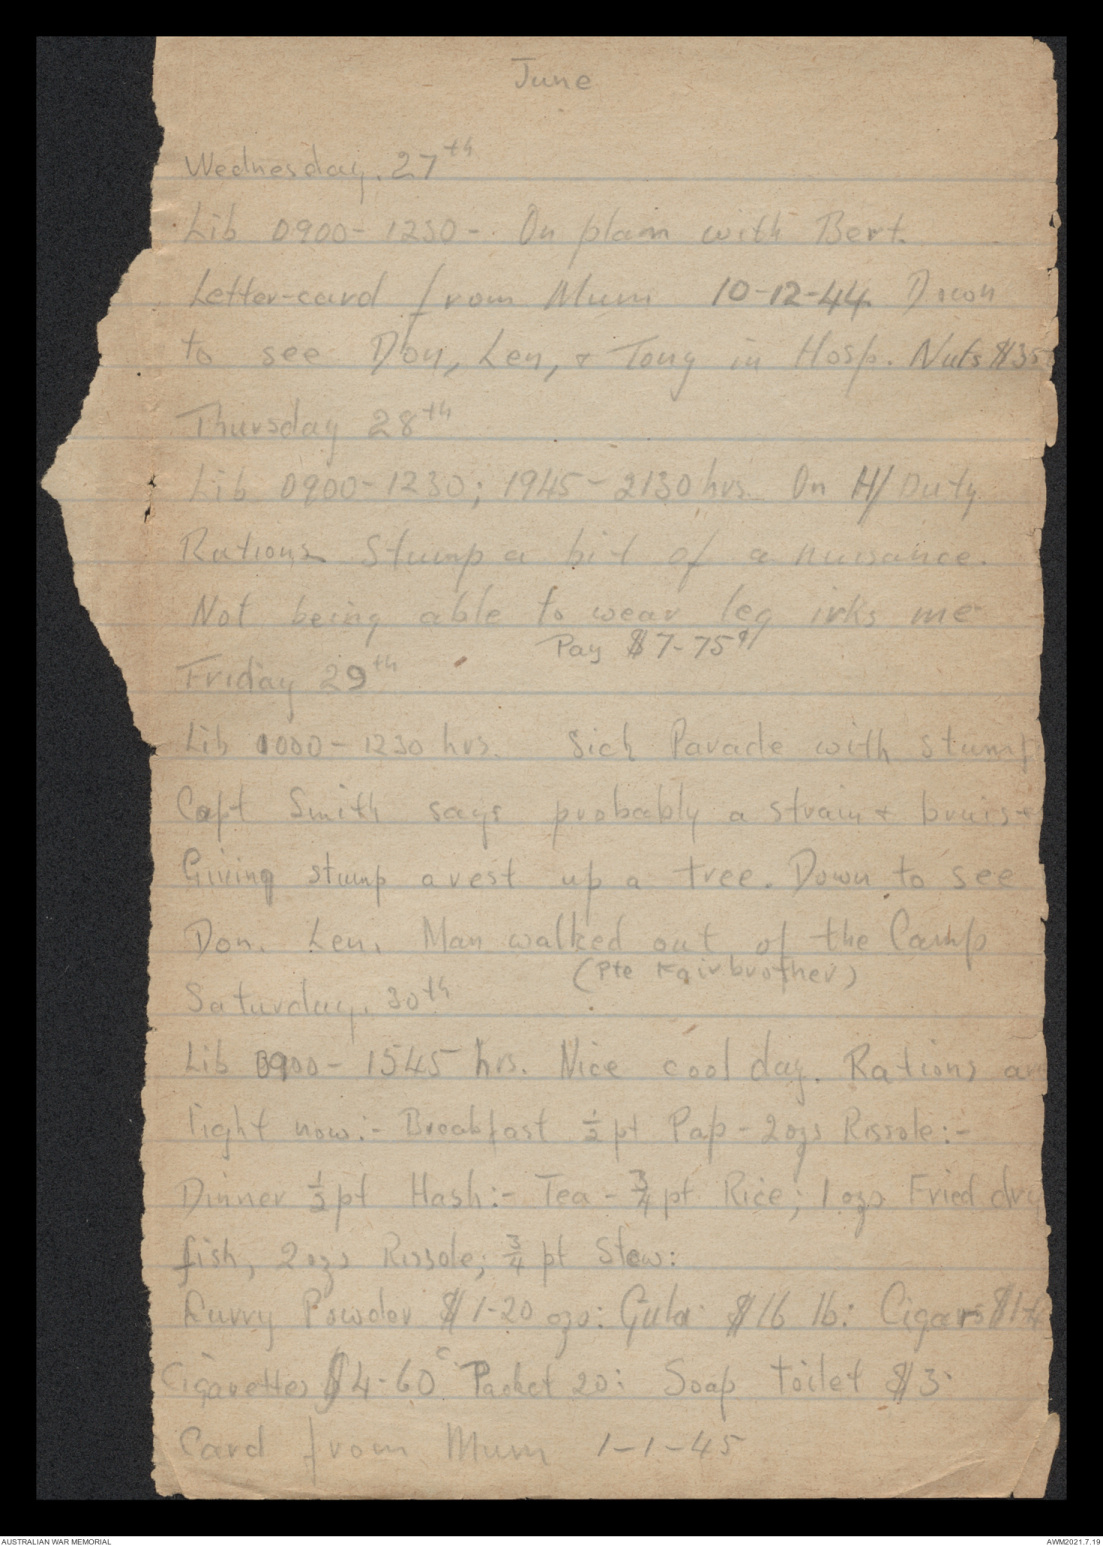 June
Wednesday. 27th
Lib 0900-1230-. On plain with Bert.
Letter-card from Mum 10-12-44 Down
to see Don, Len, & Tony in Hosp. Nuts $135
Thursday 28th
Lib 0900-1230; 1945-2130 hrs. On H/Duty
Rations Stump a bit of a nuisance.
Not being able to wear leg irks me
Pay $7-75
Friday 29th
Lib 1000-1230 hrs. Sick Parade with stump
Capt Smith says probably a strain &
Giving stump a rest up a tree. Down to see
Don. Len. Man walked out of the Camp
(Pte Fairbrother)
Saturday. 30th
Lib 0900-1545 hrs. Nice cool day. Rations
tight now:- Breakfast ½ pt Pap - 2ozs Rissole:-
Dinner ½ pt Hash:- Tea - ¾ pt Rice; 1 ozs Fried dry
fish, 2 ozs Rissole; ¾ pt Stew:
Curry Powder $1-20 ozs: Gula $16 lb: Cigars
Cigarettes $4-60c Packet 20: Soap toilet $3
Card from Mum 1-1-45
AUSTRALIAN WAR MEMORIAL
AWM2021.7.19